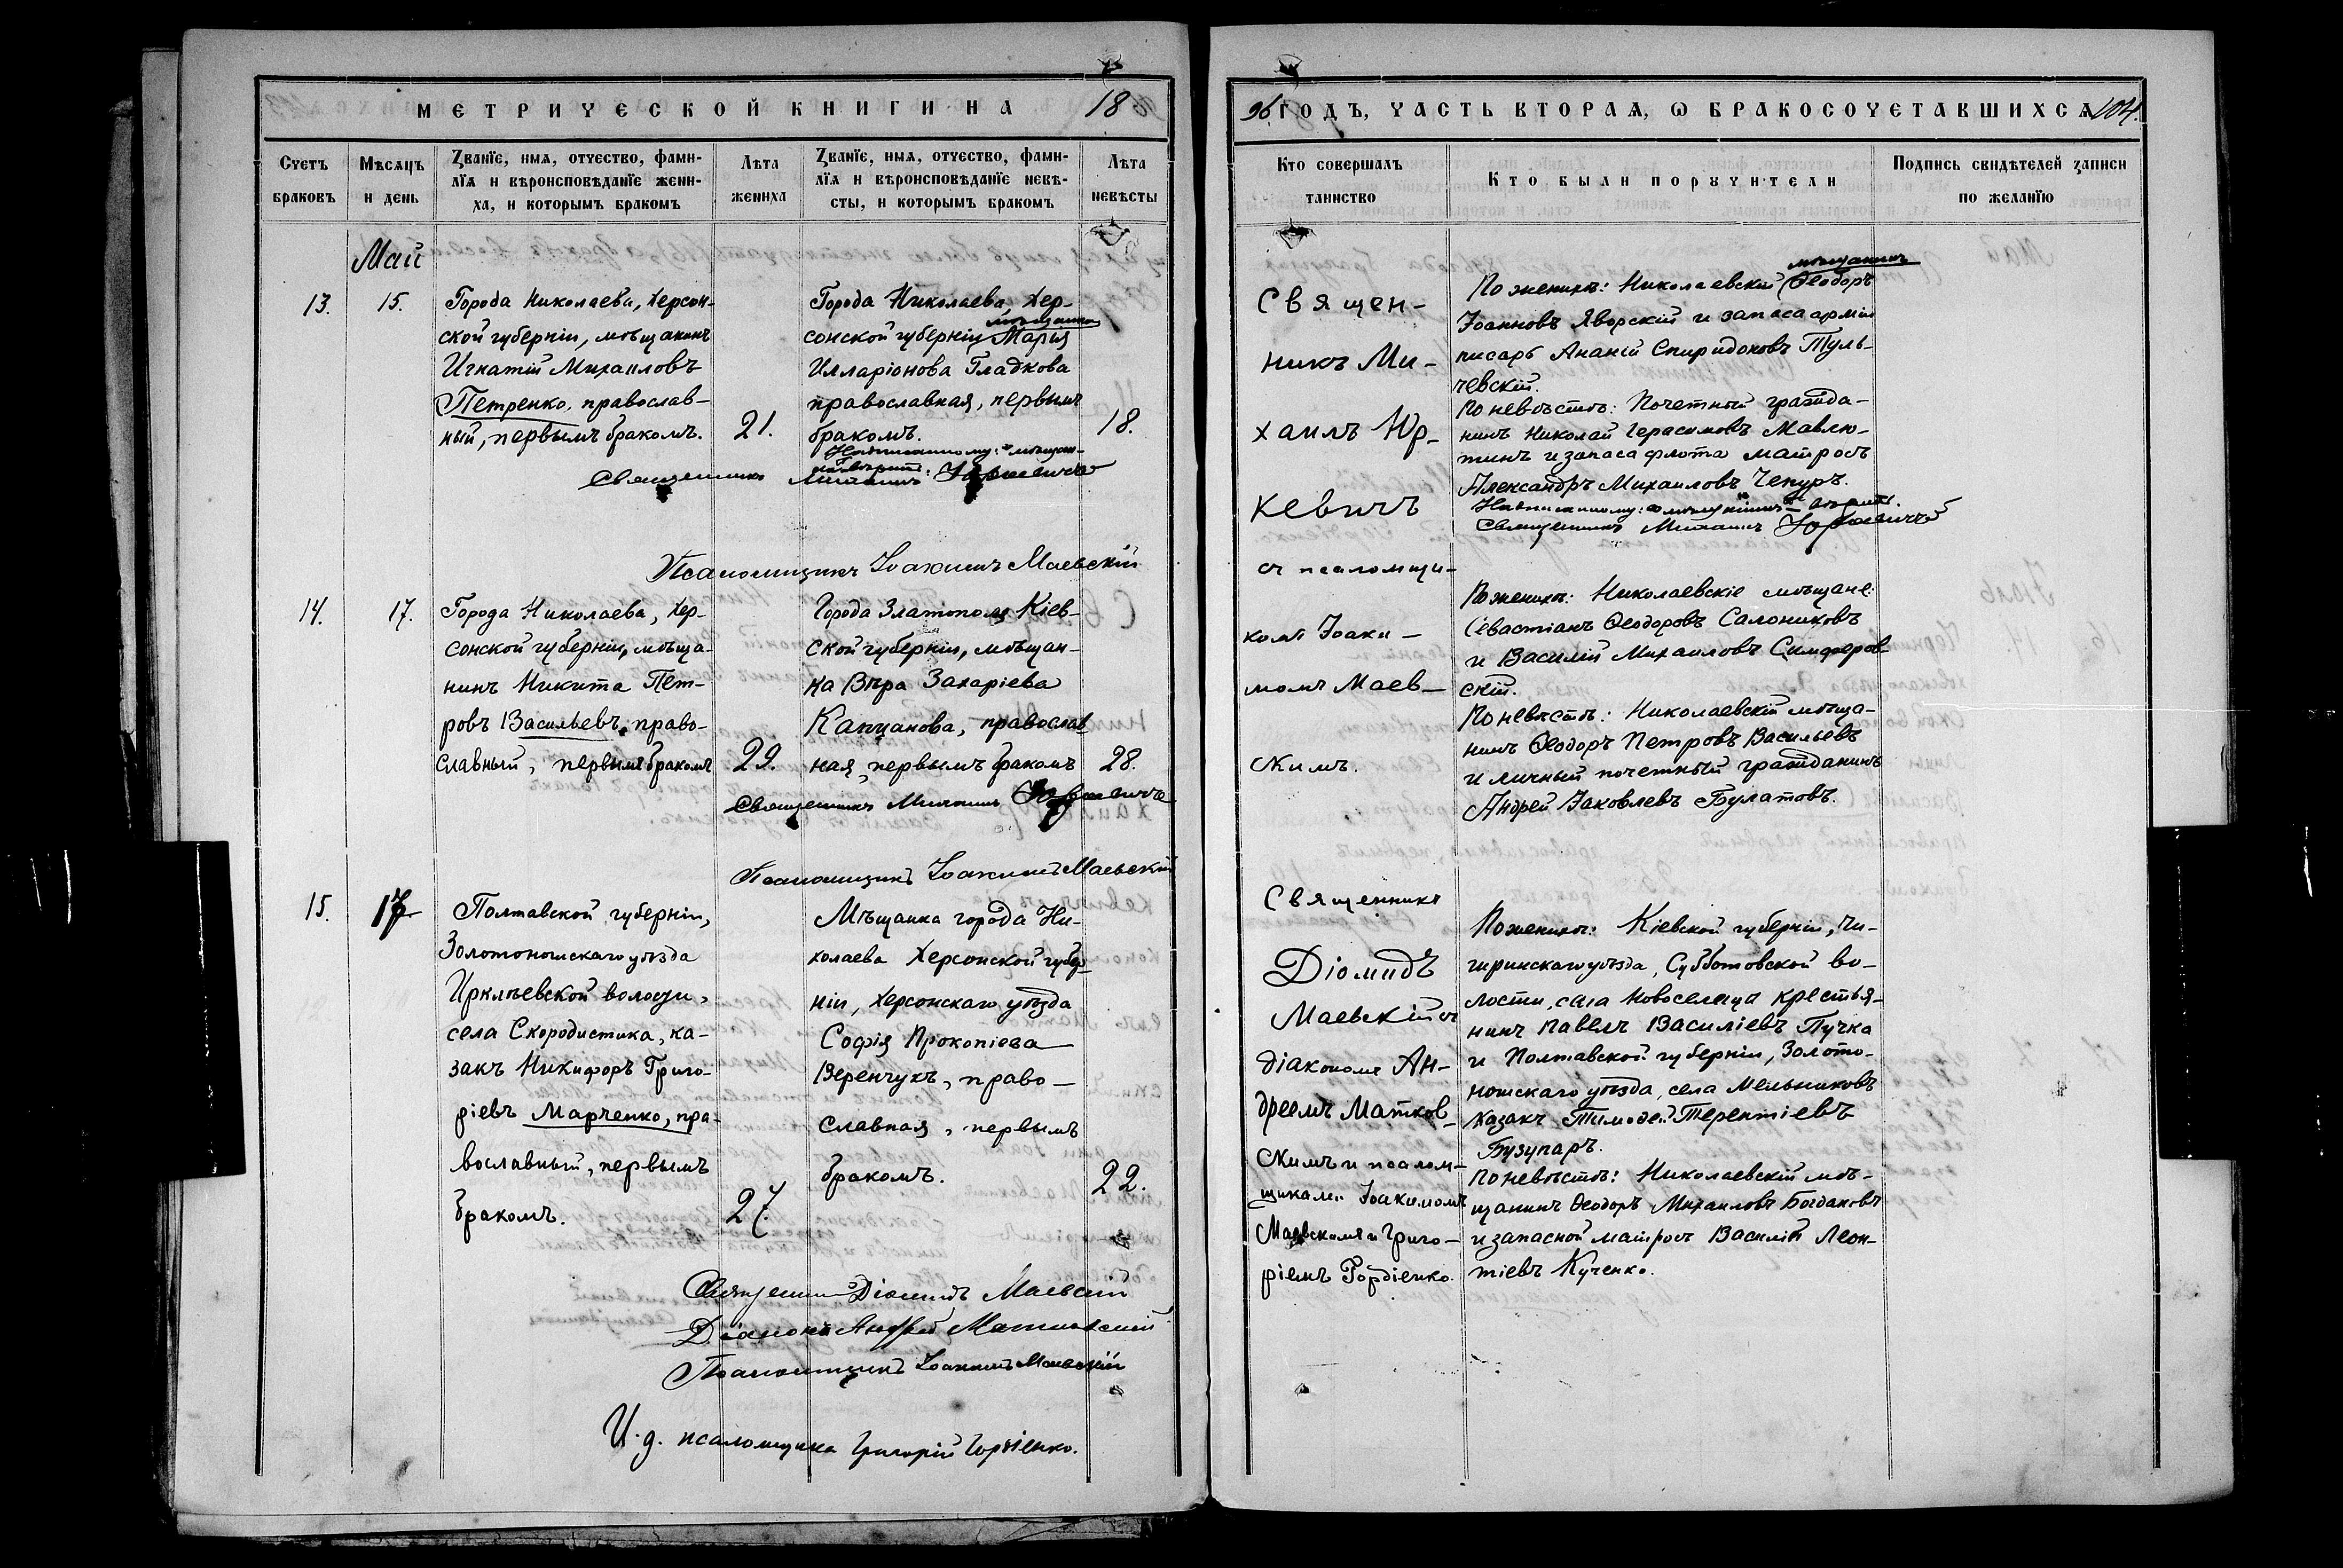 МЕТРИЧЕСКОЙ КНИГИ НА 18
Счетъ браковъ
Мѣсяцъ и день
Званіе, имя, отчество, фами-
лія и вѣроисповѣданіе жени-
ха, и которымъ бракомъ
Лѣта жениха
Званіе, имя, отчество, фами-
лія и вѣроисповѣданіе невѣ-
сты, и которымъ бракомъ
Лѣта невѣсты
Май
13.
15.
Города Николаева, Херсон-
ской губерніи, мѣщанинъ
Игнатій Михаиловъ
Петренко, православ-
ный, первымъ бракомъ.
21.
Города Николаева Хер-
мѣщанка
сонской губерніи Марія
Илларіонова Гладкова
православная, первымъ
бракомъ.
18.
Надписанному: "мѣщан-
ка" вѣрить:
Священникъ Михаилъ Юркевичъ
Псаломщикъ Іоакимъ Маевскій
14.
17.
Города Николаева, Хер-
сонской губерніи, мѣща-
нинъ Никита Пет-
ровъ Васильевъ, право-
славный, первымъ бракомъ
29.
Города Златополя Кіев-
ской губерніи, мѣщан-
ка Вѣра Захаріева
Капцанова, православ-
ная, первымъ бракомъ
28.
Священникъ Михаилъ Юркевичъ
Псаломщикъ Іоакимъ Маевскій
15.
17
Полтавской губерніи,
Золотоношскаго уѣзда
Ирклѣевской волости,
села Скородистика, ка-
закъ Никифоръ Григо-
ріевъ Марченко, пра-
вославный, первымъ
бракомъ.
27.
Мѣщанка города Ни-
колаева Херсонской губер-
ніи, Херсонскаго уѣзда
Софія Прокопіева
Веренчукъ, право-
славная, первымъ
бракомъ.
22.
Священникъ Діомидъ Маевскій
Діаконъ Андрей Матковскій
Псаломщикъ Іоакимъ Маевскій
И. д. псаломщика Григорій Гордіенко.
96 ГОДЪ, ЧАСТЬ ВТОРАЯ, Ѡ БРАКОСОЧЕТАВШИХСЯ 104.
Кто совершалъ
таинство
Кто были поручители
Подпись свидѣтелей записи
по желанію
Священ-
никъ Ми-
хаилъ Юр-
кевичъ
съ псаломщи-
комъ Іоаки-
момъ Маев-
скимъ.
мѣщанинъ
По женихѣ: Николаевскій Ѳеодоръ
Іоанновъ Яворскій и запаса арміи
писарь Ананій Спиридоновъ Туль-
чевскій.
По невѣстѣ: Почетный гражда-
нинъ Николай Герасимовъ Мавлю-
тинъ и запаса флота матросъ
Александръ Михаиловъ Чепуръ.
Надписанному: "мѣщанинъ" вѣрить.
Священникъ Михаилъ Юркевичъ
По женихѣ: Николаевскіе мѣщане:
Севастіанъ Ѳеодоровъ Салониковъ
и Василій Михаиловъ Симферов-
скій.
По невѣстѣ: Николаевскій мѣща-
нинъ Ѳеодоръ Петровъ Васильевъ
и личный почетный гражданинъ
Андрей Яковлевъ Булатовъ.
Священникъ
Діомидъ
Маевскій съ
діакономъ Ан-
дреемъ Матков-
скимъ и псалом-
щиками Іоакимомъ
Маевскимъ и Григо-
ріемъ Гордіенко.
По женихѣ: Кіевской губерніи, Чи-
гиринскаго уѣзда, Субботовской во-
лости, села Новоселица крестья-
нинъ Павелъ Василіевъ Пучка
и Полтавской губерніи, Золото-
ношскаго уѣзда, села Мельниковъ
казакъ Тимоѳей Терентіевъ
Бузунаръ.
По невѣстѣ: Николаевскій мѣ-
щанинъ Ѳеодоръ Михаиловъ Богдановъ
и запасной матросъ Василій Леон-
тіевъ Кученко.